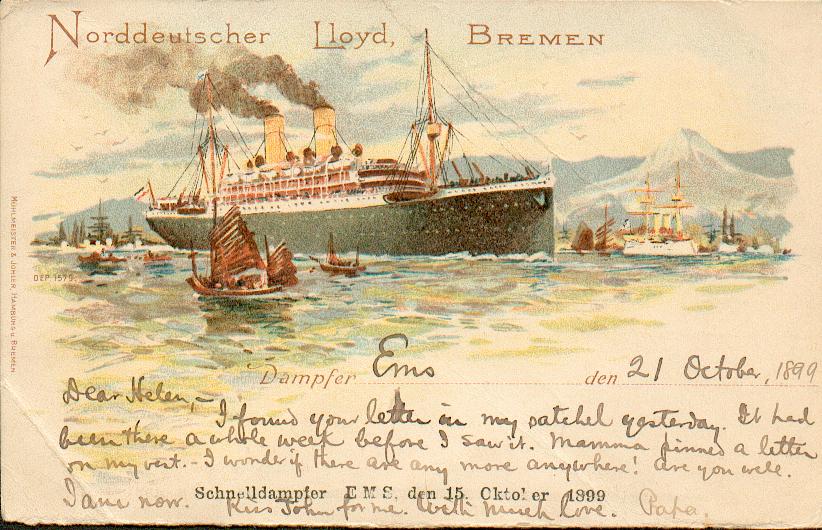 Norddeutscher Lloyd, BREMEN
MÜHLMEISTER & JOHLER, HAMBURG u. BREMEN.
DEP 1579
Dampfer Ems den 21 October, 1899
Dear Helen,- I found your letter in my satchel yesterday. It had
been there a whole week before I saw it. Mamma pinned a letter
on my vest. - I wonder if there are any more anywhere! are you well.
I am now. Kiss John for me. With much love. Papa.
Schnelldampfer EMS, den 15. Oktober 1899